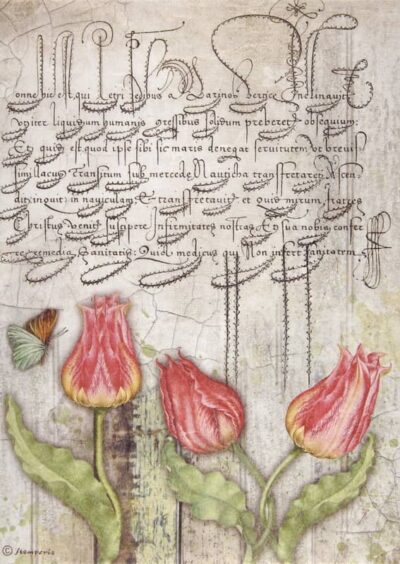 onne hic est, qui etri pedibus a Marinos vertice Inclinauit
liquidum humanis gressibus solidum preberet obsequium:
Et quid est, quod ipse sibi sic maris denegat seruitutem Vt breui
lacus transitum sub mercede Nauticha transfretaret: Ascen
dit inquit in nauiculam: Et transfretauit: et Quid mirum fratres
Christus venit suscipere Infirmitates nostras, Et sua nobis confer
re remedia Sanitatis: Quia medicus qui Non infert sanitatem
© Stamperia